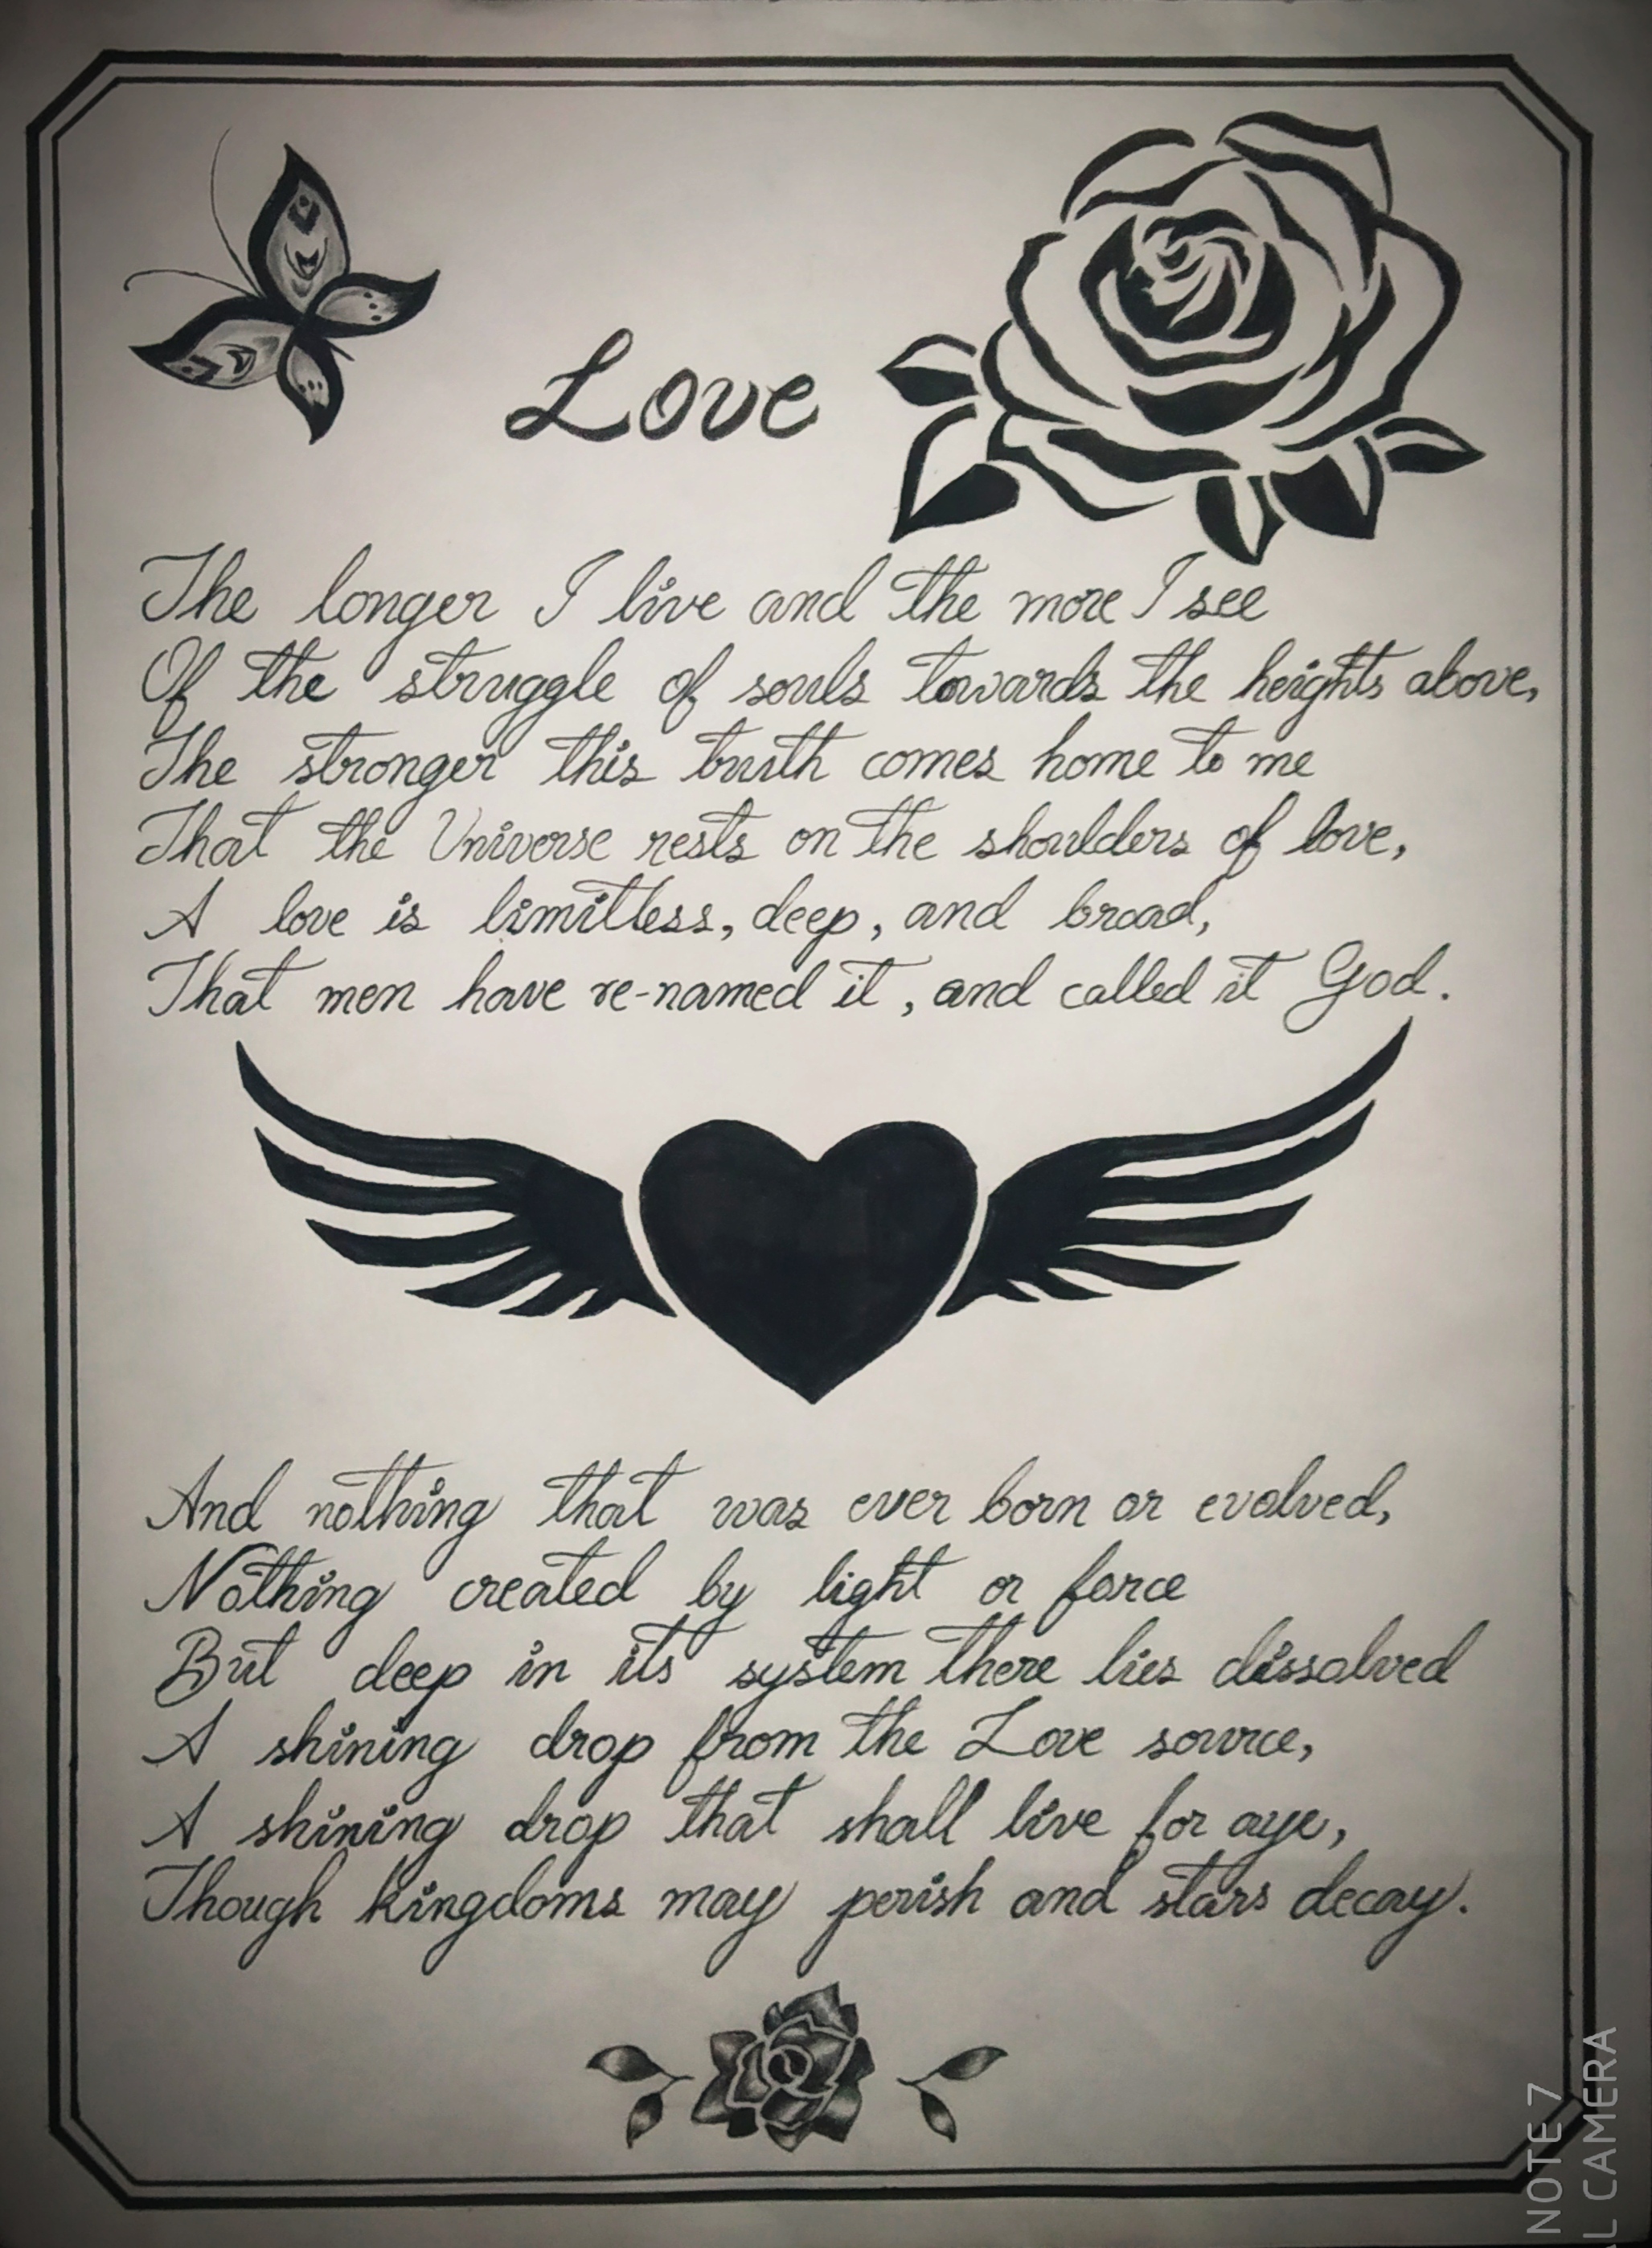 Love
The longer I live and the more I see
Of the struggle of souls towards the heights above,
The stronger this truth comes home to me
That the Universe rests on the shoulders of love,
A love is limitless, deep, and broad,
That men have re-named it, and called it God.
And nothing that was ever born or evolved,
Nothing created by light or force
But deep in its system there lies dissolved
A shining drop from the Love source,
A shining drop that shall live for aye,
Though kingdoms may perish and stars decay.
NOTE 7
L CAMERA